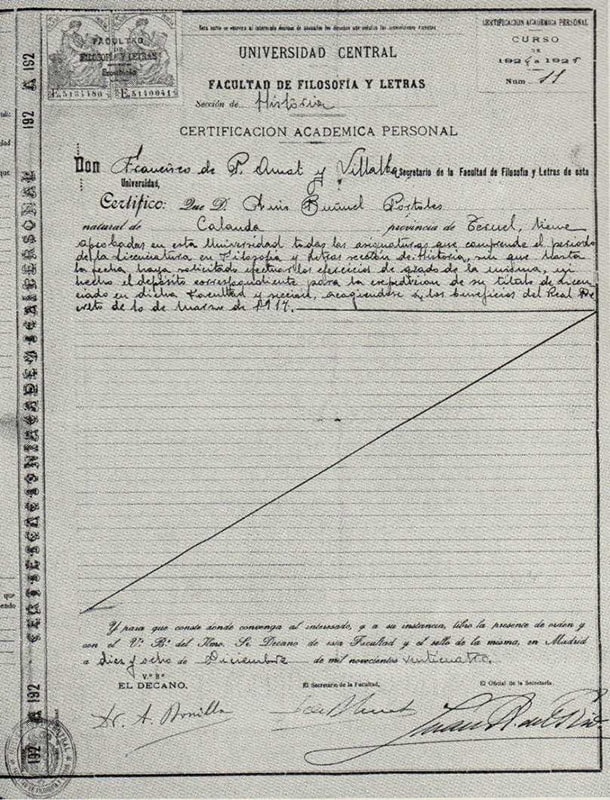 FACULTAD
DE
FILOSOFÍA Y LETRAS
E.5134480
E.4140041
UNIVERSIDAD CENTRAL
FACULTAD DE FILOSOFÍA Y LETRAS
Sección de Historia
CERTIFICACION ACADEMICA PERSONAL
CERTIFICACION ACADEMICA PERSONAL
CURSO
DE
1924 a 1925
Núm. 11
Don Francisco de P. Amat y Villalba, Secretario de la Facultad de Filosofía y Letras de esta
Universidad,
Certifico: Que D. Luis Buñuel Portolés
natural de Calanda provincia de Teruel, tiene
aprobadas en esta Universidad todas las asignaturas que comprende el periodo
de la licenciatura en Filosofía y Letras sección de Historia, sin que hasta
la fecha haya solicitado efectuar los ejercicios de grado de la misma,
hecho el depósito correspondiente para la expedicion de su título de licen
ciado en dicha Facultad y seccion, acogiendose a los beneficios del Real De
creto de 10 de Marzo de 1917.
Y para que conste donde convenga al interesado, y a su instancia, libro la presente de orden y
con el V.º B.º del Ilmo. Sr. Decano de esta Facultad y el sello de la misma, en Madrid
a diez y ocho de Diciembre de mil novecientos veinticuatro.
V.º B.º
EL DECANO,
El Secretario de la Facultad,
El Oficial de la Secretaría,
Dr. A. Bonilla
192
192
192
192